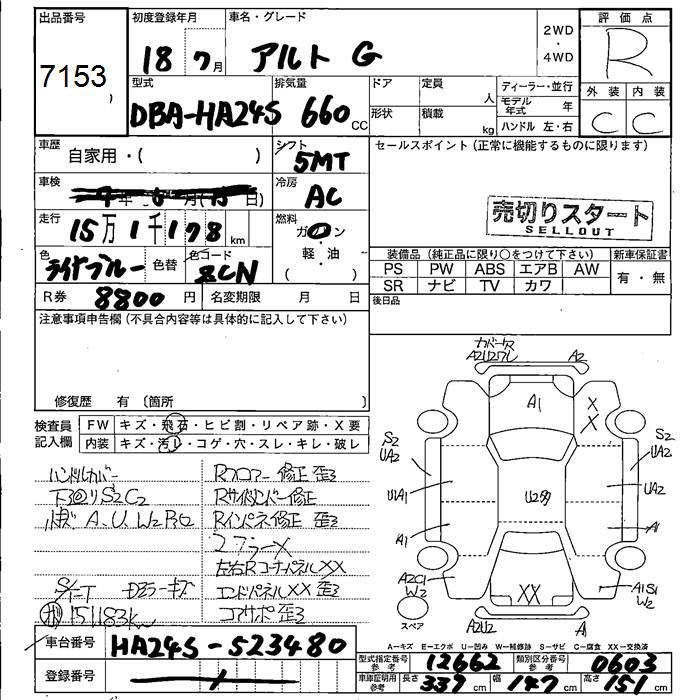 出品番号
7153
)
初度登録年月
18 7月
車名・グレード
アルト G
2WD
・
4WD
評価点
R
外装 内装
C C
型式
DBA-HA24S
排気量
660 CC
ドア 定員
人
形状 積載
kg
ディーラー・並行
モデル年式 年
ハンドル 左・右
車歴
自家用・( )
シフト
5MT
セールスポイント (正常に機能するものに限ります)
車検
冷房
AC
走行
15万1千178 km
燃料
ガ ン
・
軽・油
・
( )
売切りスタート
SELLOUT
色
ライトブルー
色替
色コード
ZCN
装備品 (純正品に限り〇をつけて下さい)
新車保証書
PS PW ABS エアB AW
SR ナビ TV カワ
有・無
R券 8800 円
名変期限 月 日
後日品
注意事項申告欄 (不具合内容等は具体的に記入して下さい)
修復歴 有 (箇所 )
検査員記入欄
FW キズ・飛石・ヒビ割・リペア跡・X要
内装 キズ・汚レ・コゲ・穴・スレ・キレ・破レ
ハンドルカバー
下回りS2C2
Rフロアー修正 歪3
Rサイドメンバー修正
Rインパネ修正 歪3
左右Rコーナーパネル XX
エンドパネル XX 歪3
コアサポ歪3
151183km
カバーナス
A2
A1
X
X
S2
UA2
U1A1
A1
A2C1
W2
U2
XX
S2
UA2
UA2
A1
A1S1
W2
A2U2
A1
スペア
A=キズ E=エクボ U=凹み W=補修跡 S=サビ C=腐食 XX=交換済
車台番号
HA24S-523480
登録番号
型式指定番号 参考 12662
類別区分番号 参考 0603
車庫証明用 参考 長さ 339 cm 幅 147 cm 高さ 151 cm